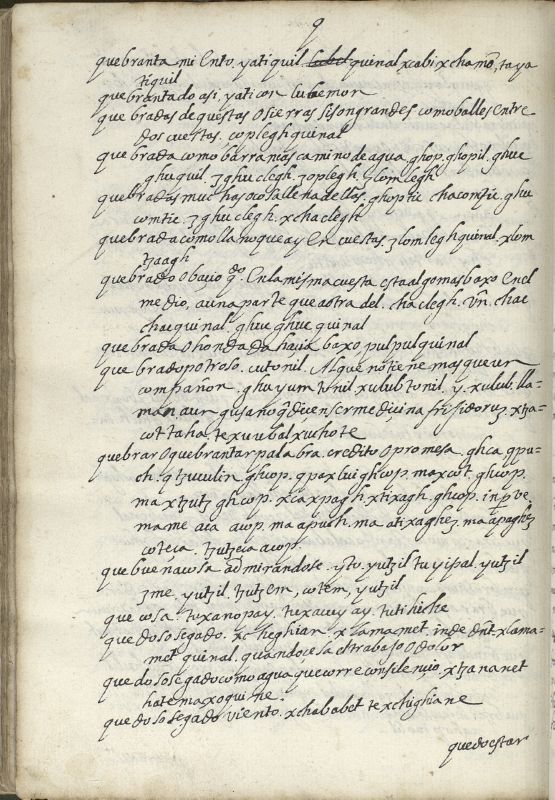 q
quebranta mi Entº. yatiquil quinal xcabi xchamô, taya
tiquil
quebrantado asi, yaticon lubemor
quebradas de questas O sierras si son grandes como balles entre
dos cuestas, coplegh quinal
quebrada como barrancas camino de agua, ghop, ghopil. ghue
ghuquil. ȝ ghu clegh. ȝoplegh. lomlegh
quebradas muchas o cosa llena dellas. ghoptic chacomtic. ghu
comtic. ȝ ghu clegh. xchaclegh
quebrada como llano que ay En cuestas ȝ lom legh quinal. xlom
tzaagh
quebrado O baxio qdo Enla misma cuesta esta algo mas baxo En el
medio, a una parte que a otra del. chaclegh. Vn chac
chac quinal. ghuc ghuc quinal
quebrada O honda da hacia baxo, pulpul quinal
quebrado potroso. cutonil. Al que no tiene mas que un
compañon. ghayum tonil xulub tonil. y. xulub. lla-
man a un gusano q̃ diçen ser medicina frisidoruz. xtza-
cot taho, texuubal xuchote
quebrar O quebrantar palabra. credito O promesa. ghca, qpu-
ch. qtzuculin. ghcop. qpaxlui ghcop. maxcot. ghcop.
maxtzutz ghcop. xcaxpagh xtixagh. ghcop. in pve.
mame aca acop. ma apuch. ma atixaghez. ma apaghez
coteca. tzutzeca acop.
que buena cosa admirandose. ysto. yutzil tuyipal. yutzil
ȝme. yutzil tzutzem, cotem, yutzil
que cosa. tuxanopay. tuxauyay. tuti hiche
quedo sosegado. xcheghian. xlamamet. inde dnt. xlama-
met quinal. quando cesa el trabajo O dolor
quedo sosegado como agua que corre con silencio. xtzananet
hate maxoquine.
quedo sosegado viento. xchababet texchighiane
quedo estar